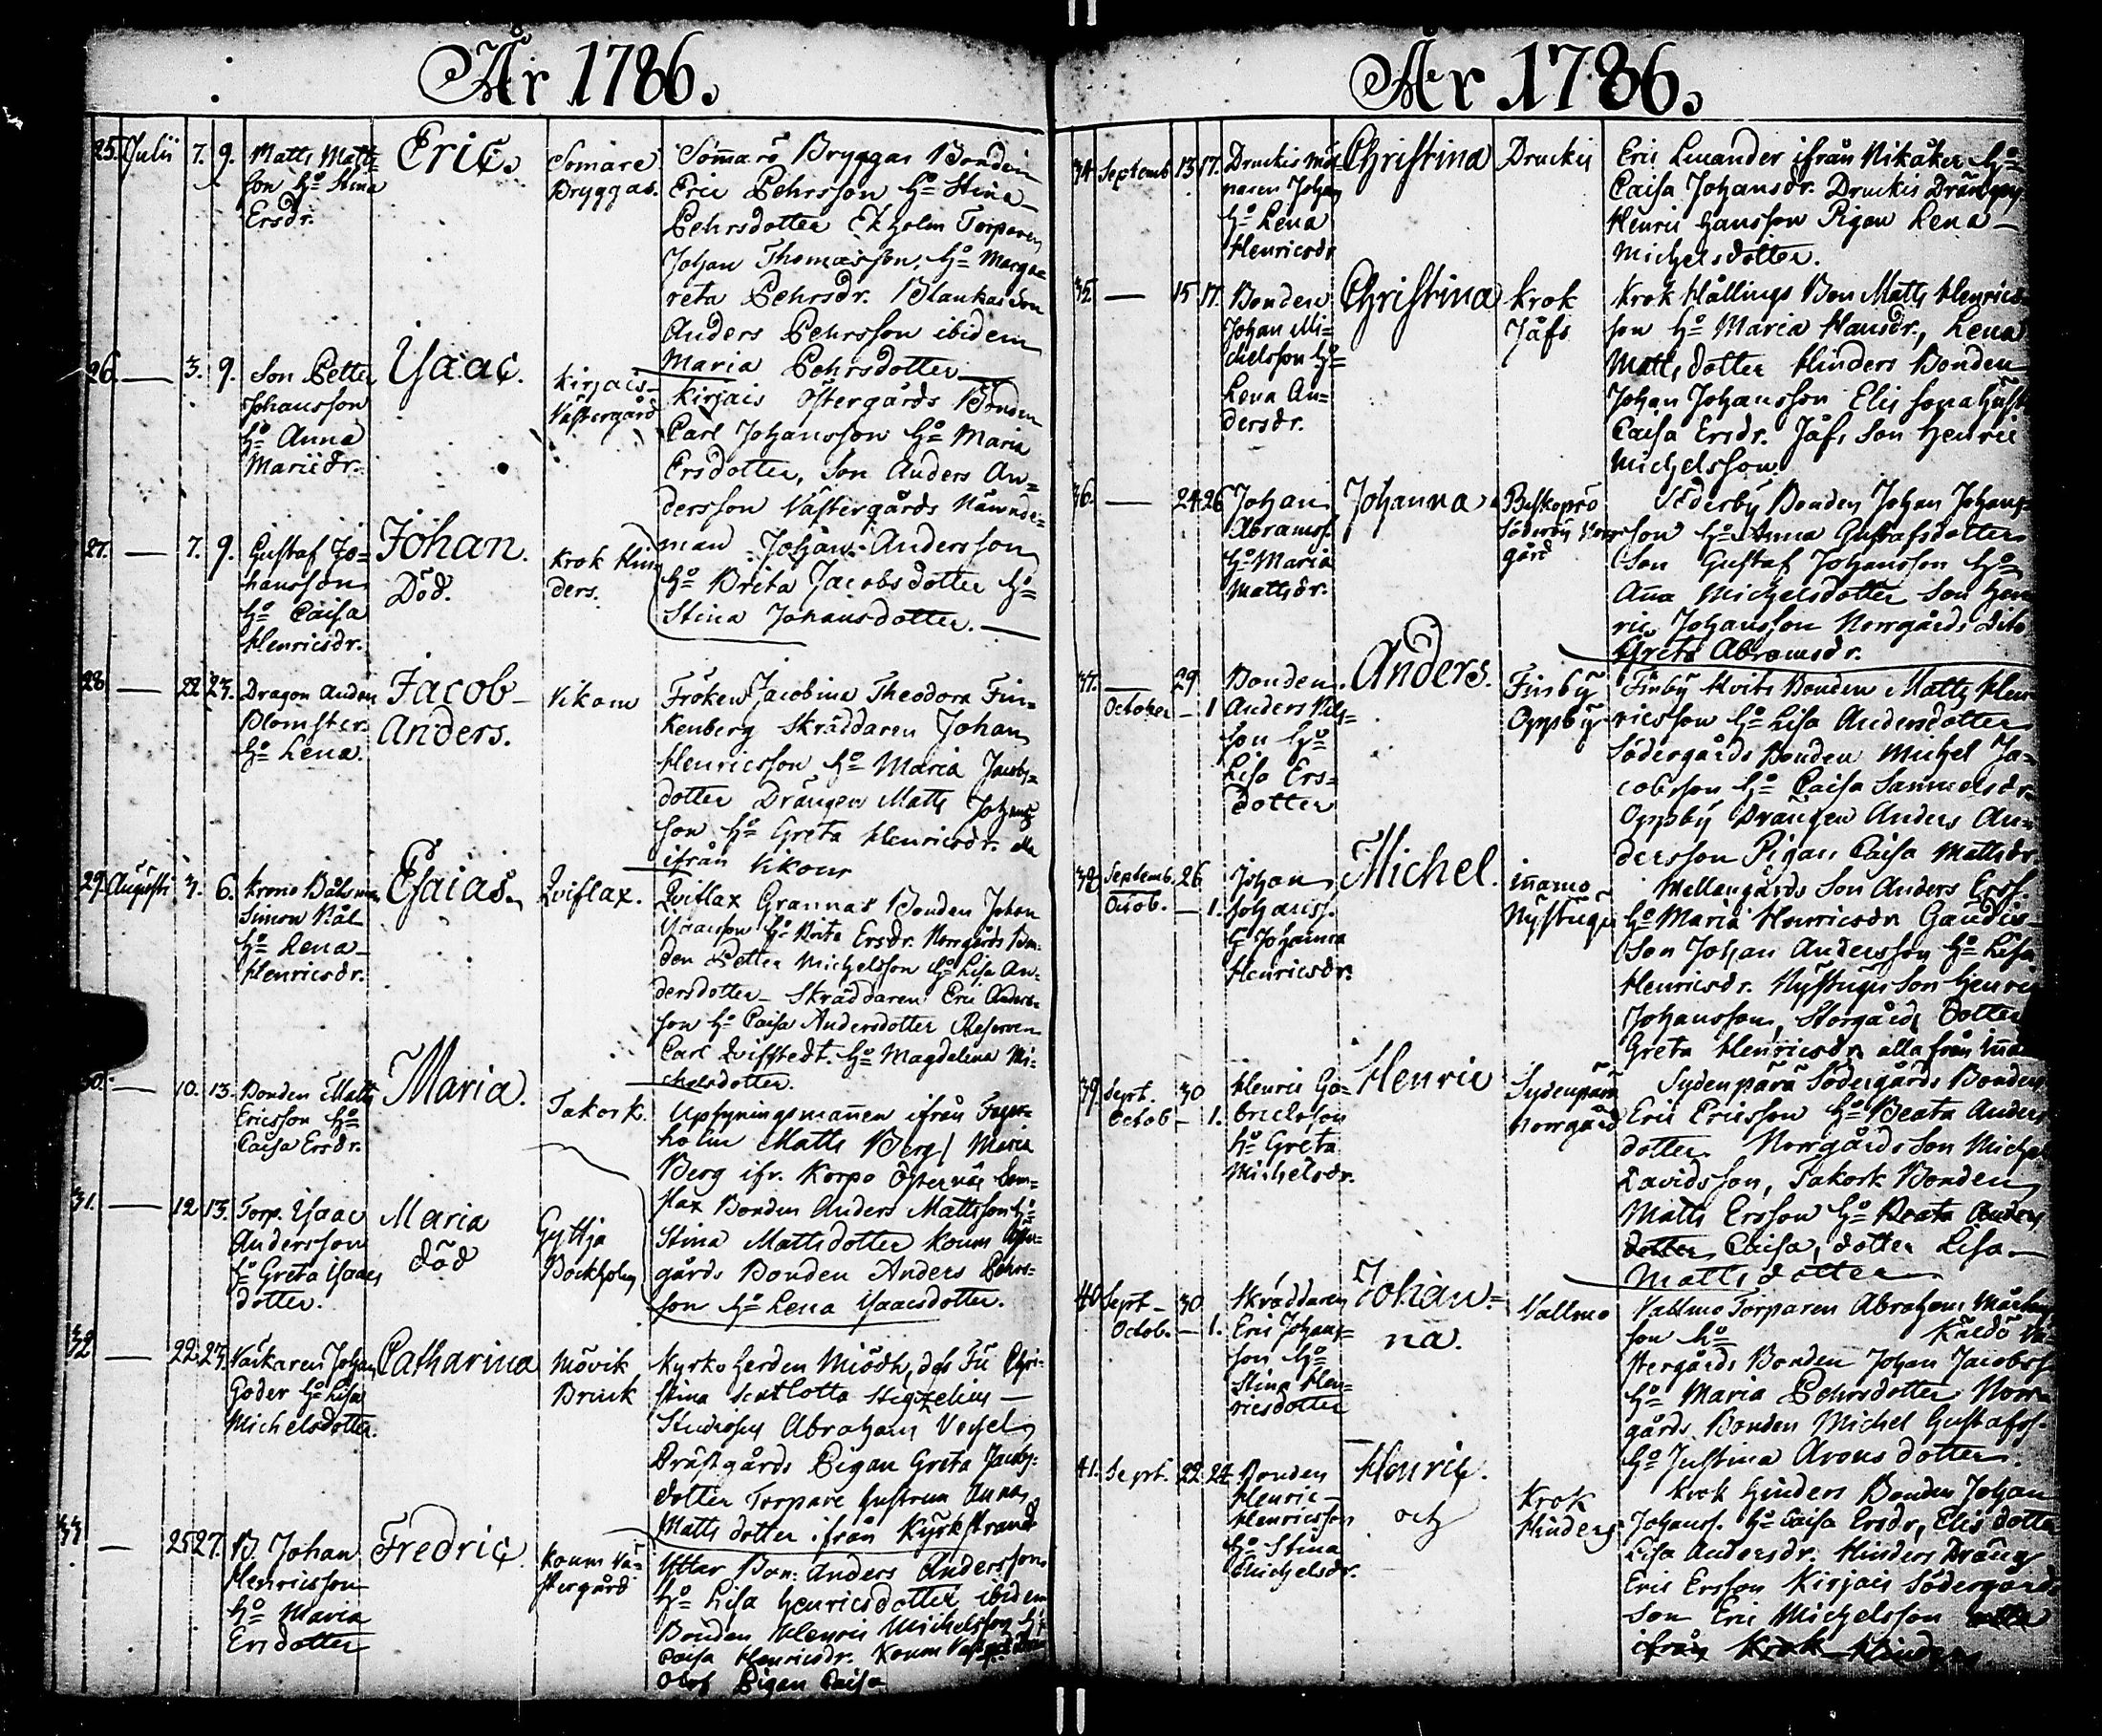 År 1786.
25. Julii 7. 9. Matts Matts=
son Ho Stina
Ersdr.
Eric.
Somarö
Bryggas.
Somarö Bryggas Bonden
Eric Pehrsson Ho Stina
Pehrsdotter Ekholm Torparen
Johan Thomasson, Ho Marga=
reta Pehrsdr. Blankas Son
Anders Pehrsson ibidem
Maria Pehrsdotter
26. — 3. 9. Son Petter
Johansson
Ho Anna
Isaac.
Kirjais
Västergård
Kirjais Östergårds Bonden
Carl Johansson Ho Maria
Ersdotter, Son Anders An=
dersson Västergårds Nämnde=
man Johan Andersson
Ho Brita Jacobsdotter Ho
Stina Johansdotter.
27. — 7. 9. Gustaf Jo=
hansson
Ho Caisa
Henricsdr.
Johan.
Död.
Krok Hin
ders.
28 — 22 23. Dragon Anders
Blomster
Ho Lena.
Jacob
Anders.
Vikom
Fröken Jacobina Theodora Fin=
kenberg Skräddaren Johan
Henricsson Ho Maria Jacobs=
dotter Drängen Matts Johans
son Ho Greta Henricsdr. alla
ifrån Vikom
29. Augusti 3. 6. Krono Båtsman
Simon Nål
Ho Lena
Henricsdr.
Esaias.
Qviflax.
Qviflax Grannas Bonden Johan
Isaacsson Ho Brita Ersdr. Norrgårds Bon=
den Petter Michelsson Ho Lisa An=
dersdotter Skräddaren Eric Anders=
son Ho Caisa Andersdotter Reserven
Carl Qvifstedt. Ho Magdalena Mi=
chelsdotter.
30. — 10. 13. Bonden Matts
Ericsson Ho
Caisa Ersdr.
Maria.
Takork.
Upsyningsmannen ifrån Fager=
holm Matts Berg Maria
Berg ifr. Korpo Österväs
Bonden Anders Mattsson Ho
Stina Mattsdotter Koum
gårds Bonden Anders Pehrs=
son Ho Lena Isaacsdotter.
31. — 12 13. Torp. Isaac
Andersson
Ho Greta Isaacs
dotter.
Maria
död
Gyttja
Bockholm
32 — 22. 27. Johan
Goder Ho Lisa
Michelsdotter.
Catharina
Mövik
Bruk
Kyrkoherden Miödh, dess Fru Chri=
stina Scarlotta Stigzelius
Studiosus Abraham
Prästgårds Pigan Greta Jacobs=
dotter Torpare hustrun Anna
Matts dotter ifrån Kyrkstrand
33 — 25 27. B. Johan
Henricsson
Ho Maria
Ersdotter
Fredric.
Koum Vä=
stergård
Yttar Bon. Anders Andersson
Ho Lisa Henricsdotter ibidem
Bonden Henric Michelsson Ho
Caisa Henricsdr. Koum
Olof Pigan Caisa
År 1786.
34 Septemb. 13 17. Druckis
Johan
Ho Lena
Henricsdr
Christina
Druckis
Eric Lucander ifrån Nikåker Ho
Caisa Johansdr. Druckis Drängen
Henric Hansson Pigan Lena
Michelsdotter.
35. — 15 17. Bonden
Johan Mi=
chelsson Ho
Lena An=
dersdr.
Christina
Krok
Jåfs
Krok Hållings Bon Matts Henrics
son Ho Maria Hansdr., Lena
Matts dotter Hinders Bonden
Johan Johansson Elis sona hust
Caisa Ersdr. Jåfs Son Henric
Michelsson
36. — 24 26 Johan
Abramss.
Ho Maria
Mattsdr.
Johanna
Biskopsö
Söderby Norr
gård
Söderby Bonden Johan Johans=
son Ho Anna Gustafsdotter
Son Gustaf Johansson Ho
Anna Michelsdotter Son Hen
ric Johansson Norrgårds dito
Greta Abramsdr.
37. — 29
October — 1
Bonden
Anders Nils=
son Ho
Lisa Ers=
dotter
Anders.
Finby
Oppby
Finby Kvits Bonden Matts Hen
ricsson Ho Lisa Andersdotter
Södergårds Bonden Michel Ja=
cobsson Ho Caisa Samuelsdr.
Oppby Drängen Anders An=
dersson Pigan Caisa Mattsdr
38 Septemb. 26
Octob. — 1.
Johan
Johanss.
H Johanna
Henricsdr.
Michel.
innamo
Nystugu
Mellangårds Son Anders Erss.
Ho Maria Henricsdr Gaudis
Son Johan Andersson Ho Lisa
Henricsdr. Nystugu Son Henric
Johansson, Storgårds Dotter
Greta Henricsdr. alla från
39. Sept. 30
Octob — 1.
Henric Ga=
brielsson
Ho Greta
Michelsdr.
Henric
Sydenpärä
Norrgård
Sydenpärä Södergårds Bonden
Eric Ericsson Ho Beata Anders
dotter. Norrgårds Son Michel
Davidsson, Takork Bonden
Matts Ersson Ho Beata Anders
dotter Caisa, dotter Lisa
Matts dotter
40 Sept — 30
Octob. — 1.
Skräddaren
Eric Johans=
son Ho
Stina Hen=
ricsdotter
Johan=
na.
Vallmo
Vallmo Torparen Abraham Mårtens
son Ho Käldö Vä
stergårds Bonden Johan Jacobss.
Ho Maria Pehrsdotter Norr=
gårds Bonden Michel Gustafss.
Ho Justina Arons dotter.
41. Sept. 22. 24 Bonden
Henric
Henricsson
Ho Stina
Michelsdr.
Henric.
och
Krok
Hinders
Krok Hinders Bonden Johan
Johanss. Ho Caisa Ersdr, Elis dotter
Lisa Andersdr. Hinders Dräng
Eric Ersson Kirjais Södergårds
Son Eric Michelsson alla
ifrån Krok Hinders